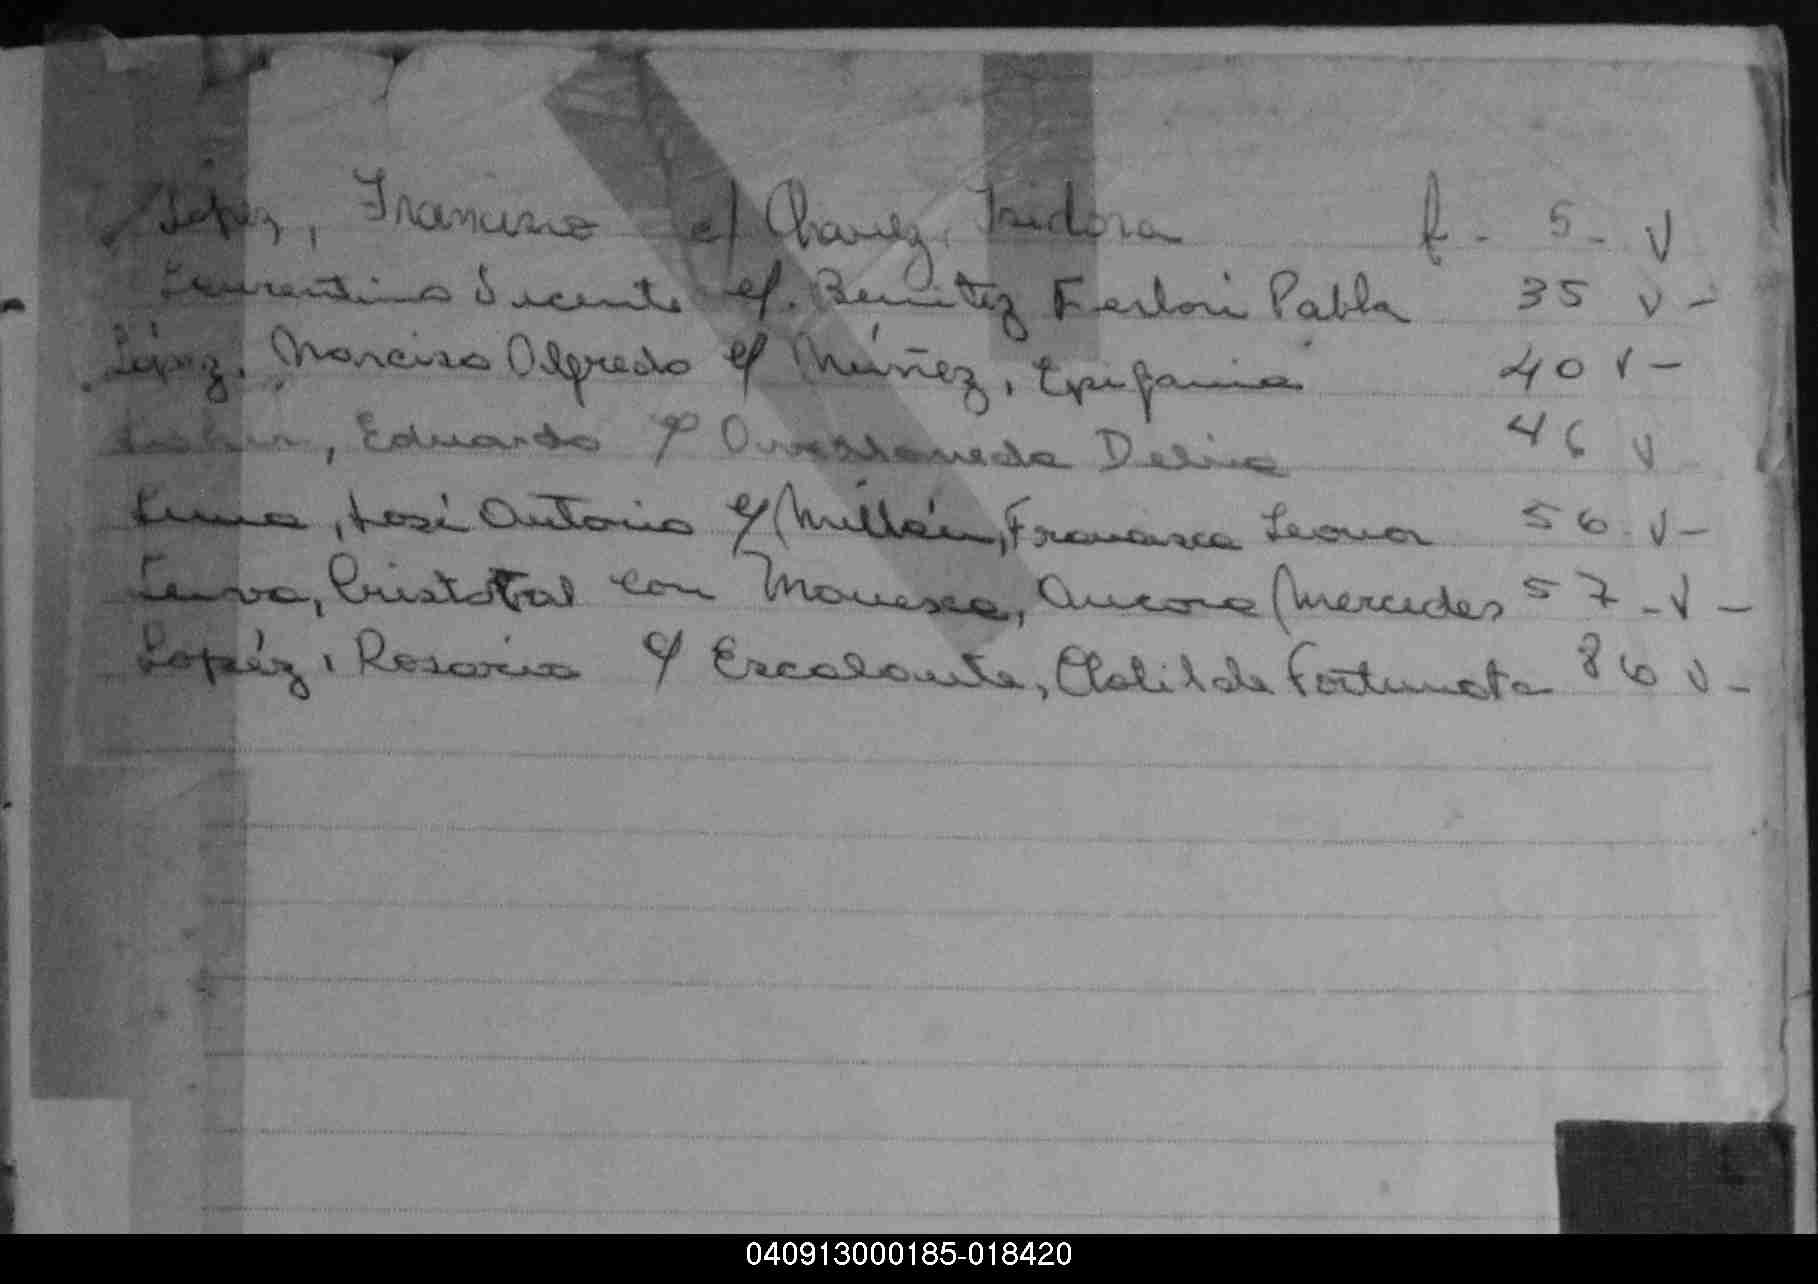 López, Francisco c/ Chavez, Isidora f. 5 - V
Vicente c/. Benitez Pabla 35 V -
López, Narciso Alfredo c/ Núñez, Epifania 40 V -
, Eduardo c/ Delina 46 V
Luna, José Antonio c/ Millán, Francisca Leonor 56 - V -
Cristobal con Aurora Mercedes 57 - V -
Lopéz, Rosario c/ Escalante, Clotilde Fortunata 86 V -
040913000185-018420